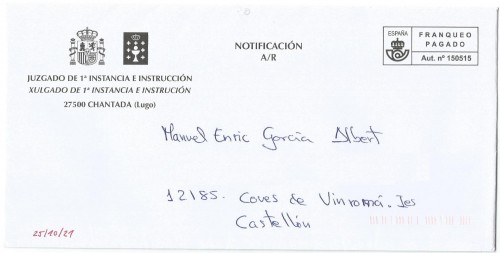 NOTIFICACIÓN
A/R
ESPAÑA
FRANQUEO
PAGADO
Aut. nº 150515
JUZGADO DE 1ª INSTANCIA E INSTRUCCIÓN
XULGADO DE 1ª INSTANCIA E INSTRUCIÓN
27500 CHANTADA (Lugo)
Manuel Enric García Albert
12185. Coves de Vinromá. Jes
Castellón
25/10/21